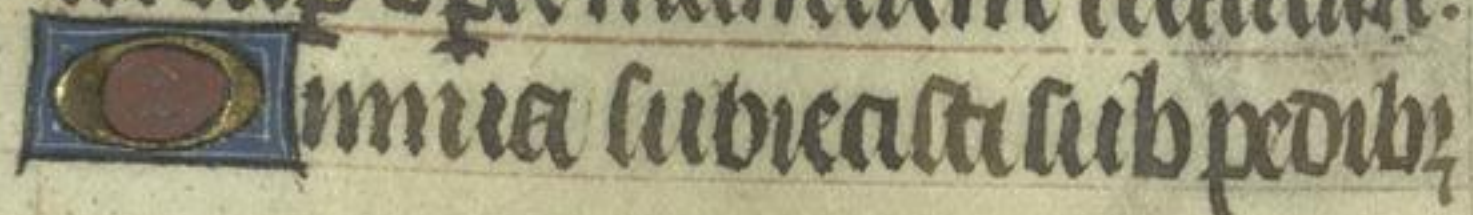 Omnia subiecisti sub pedibꝫ